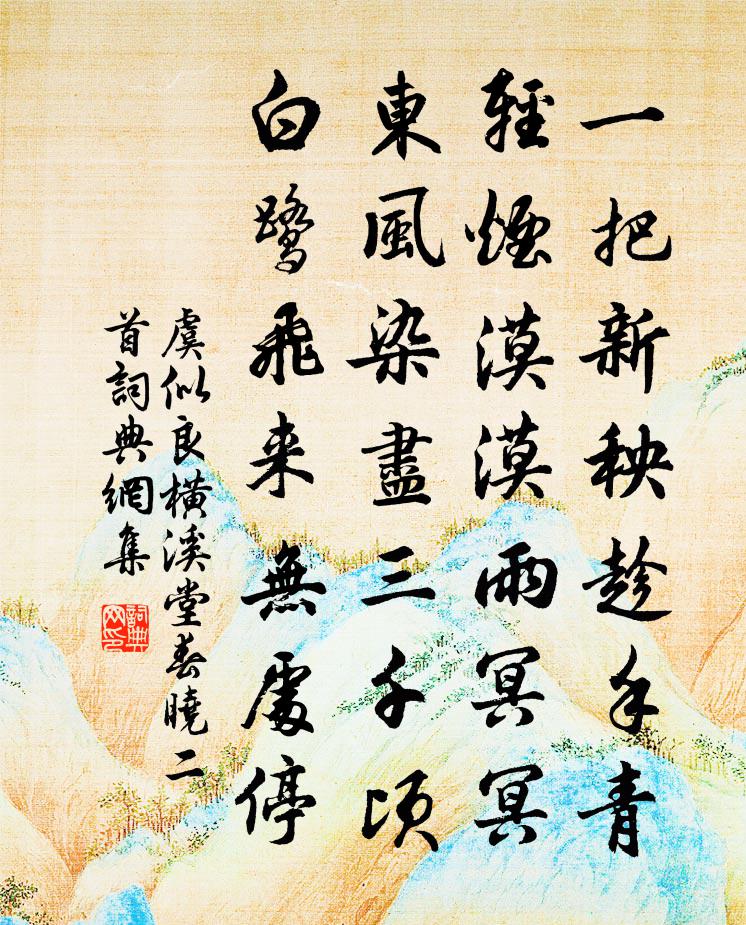 一把新秧趁手青
輕煙漠漠雨冥冥
東風染盡三千頃
白鷺飛来無處停
虞似良橫溪堂春曉二
首詞典網集
詞典網印